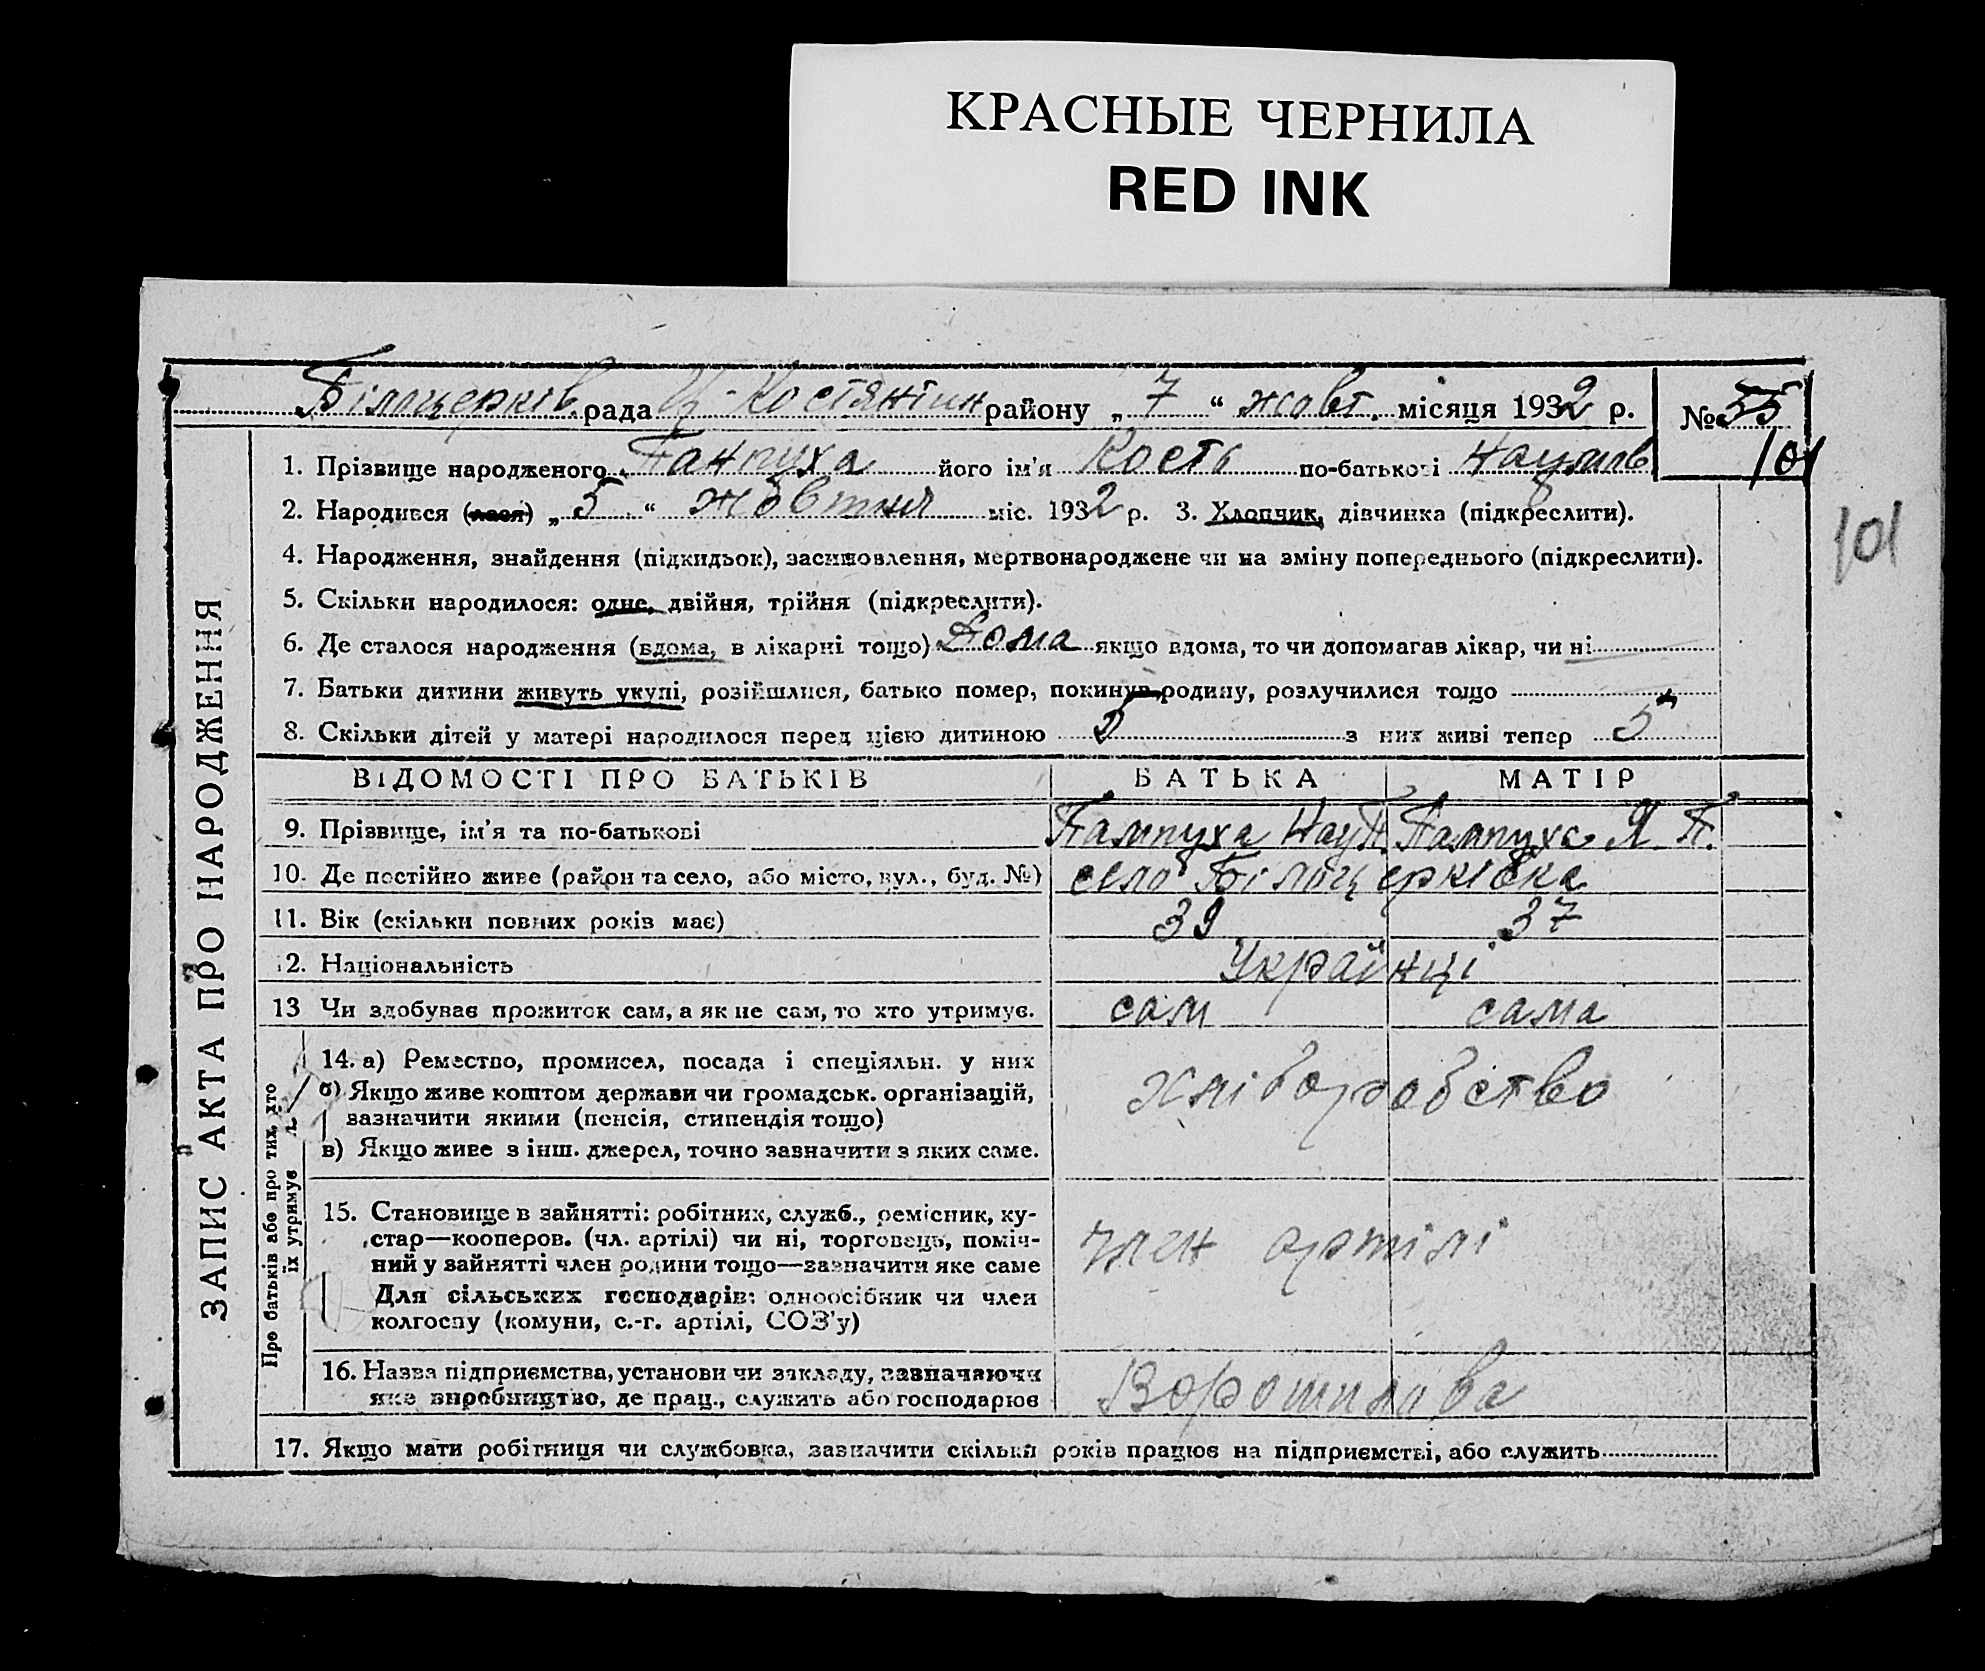 КРАСНЫЕ ЧЕРНИЛА
RED INK
Білоцерків. рада Ц-Костянтин району „ 7 “ жовт. місяця 1932 р. № 55
101
101
ЗАПИС АКТА ПРО НАРОДЖЕННЯ
1. Прізвище народженого Панпуха його ім'я Кость по-батькові Наумов
2. Народився (лася) „ 5 “ жовтня міс. 1932 р. 3. Хлопчик, дівчинка (підкреслити).
4. Народження, знайдення (підкидьок), засиновлення, мертвонароджене чи на зміну попереднього (підкреслити).
5. Скільки народилося: одне, двійня, трійня (підкреслити).
6. Де сталося народження (вдома, в лікарні тощо) Дома якщо вдома, то чи допомагав лікар, чи ні
7. Батьки дитини живуть укупі, розійшлися, батько помер, покинув родину, розлучилися тощо
8. Скільки дітей у матері народилося перед цією дитиною 5 з них живі тепер 5
ВІДОМОСТІ ПРО БАТЬКІВ БАТЬКА МАТІР
9. Прізвище, ім'я та по-батькові Пампуха Нау П. Пампуха Я. П.
10. Де постійно живе (район та село, або місто, вул., буд. №) село Білоцерківка
11. Вік (скільки повних років має) 39 37
12. Національність Українці
13 Чи здобуває прожиток сам, а як не сам, то хто утримує. сам сама
Про батьків або про тих, хто їх утримує
14. а) Ремество, промисел, посада і спеціяльн. у них
б) Якщо живе коштом держави чи громадськ. організацій,
зазначити якими (пенсія, стипендія тощо)
в) Якщо живе з інш. джерел, точно зазначити з яких саме.
хліборобство
15. Становище в зайнятті: робітник, служб., ремісник, ку-
стар—кооперов. (чл. артілі) чи ні, торговець, поміч-
ний у зайнятті член родини тощо—зазначити яке саме
Для сільських господарів: одноосібник чи член
колгоспу (комуни, с.-г. артілі, СОЗ'у)
член артілі
16. Назва підприємства, установи чи закладу, зазначаючи
яке виробництво, де прац., служить або господарює
Ворошилова
17. Якщо мати робітниця чи службовка, зазначити скільки років працює на підприємстві, або служить